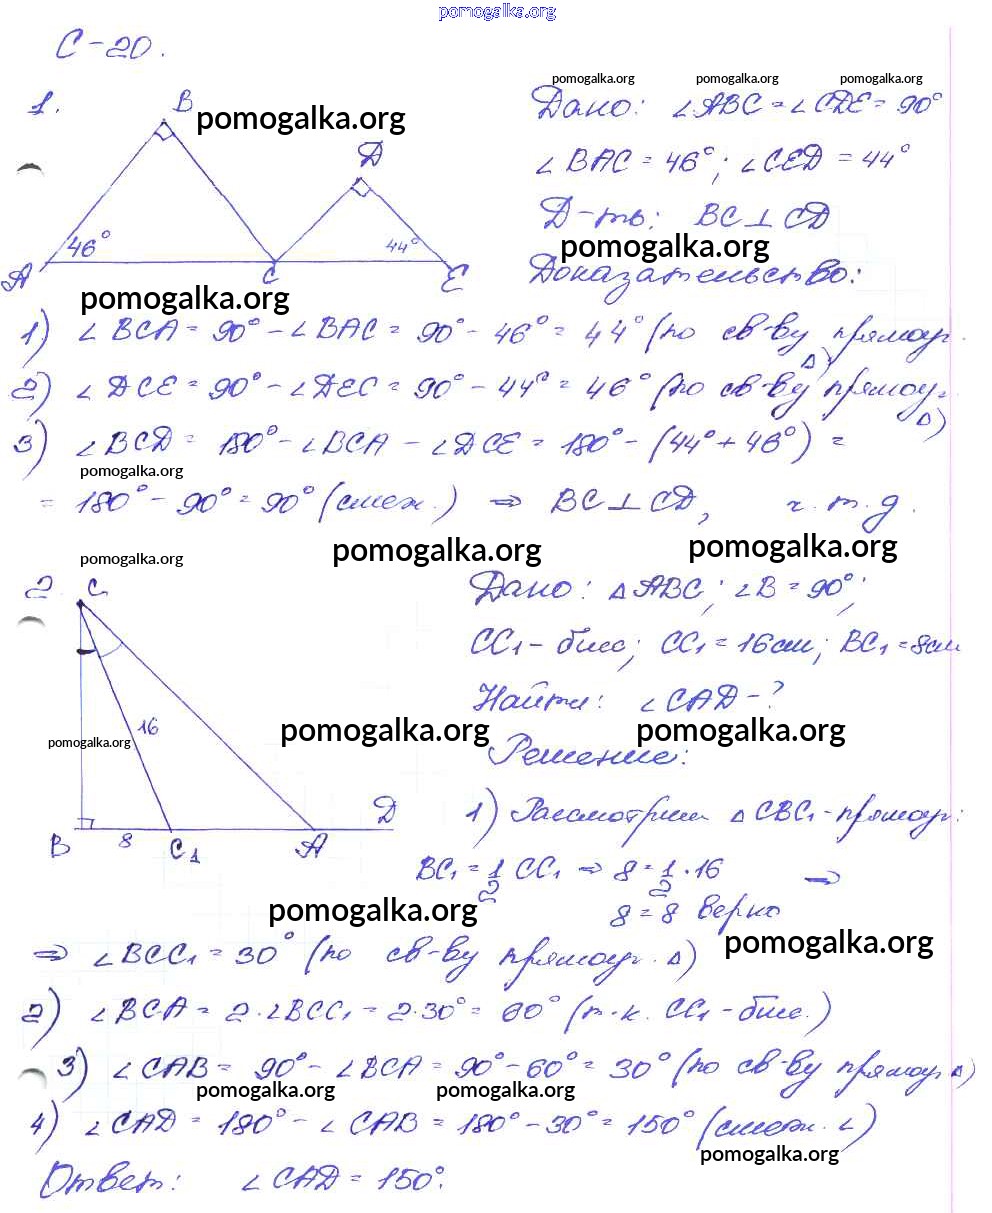 pomogalka.org
С-20.
pomogalka.org pomogalka.org pomogalka.org
1. B
pomogalka.org
D
46° 44°
A C E
pomogalka.org
Дано: ∠ABC = ∠CDE = 90°
∠BAC = 46°; ∠CED = 44°
Д-ть: BC ⊥ CD
pomogalka.org
Доказательство:
1) ∠BCA = 90° - ∠BAC = 90° - 46° = 44° (по св-ву прямоуг. Δ)
2) ∠DCE = 90° - ∠DEC = 90° - 44° = 46° (по св-ву прямоуг. Δ)
3) ∠BCD = 180° - ∠BCA - ∠DCE = 180° - (44° + 46°) =
pomogalka.org
= 180° - 90° = 90° (смеж.) ⇒ BC ⊥ CD, ч.т.д.
pomogalka.org pomogalka.org pomogalka.org
2. C
16
pomogalka.org
D
B 8 C₁ A
Дано: Δ ABC; ∠B = 90°;
CC₁ - бисс; CC₁ = 16см; BC₁ = 8см
Найти: ∠CAD - ?
pomogalka.org pomogalka.org
Решение:
1) Рассмотрим Δ CBC₁ - прямоуг:
BC₁ = 1/2 CC₁ ⇒ 8 = 1/2 · 16 ⇒
8 = 8 верно
pomogalka.org pomogalka.org
⇒ ∠BCC₁ = 30° (по св-ву прямоуг. Δ)
2) ∠BCA = 2·∠BCC₁ = 2·30° = 60° (т.к. CC₁ - бисс.)
3) ∠CAB = 90° - ∠BCA = 90° - 60° = 30° (по св-ву прямоуг Δ)
pomogalka.org pomogalka.org
4) ∠CAD = 180° - ∠CAB = 180° - 30° = 150° (смеж. ∠)
pomogalka.org
Ответ: ∠CAD = 150°.